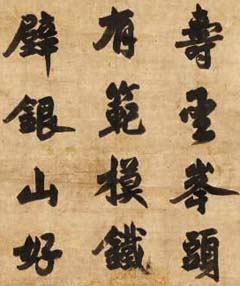 壽峯頭
有範模鐵
壁銀山好